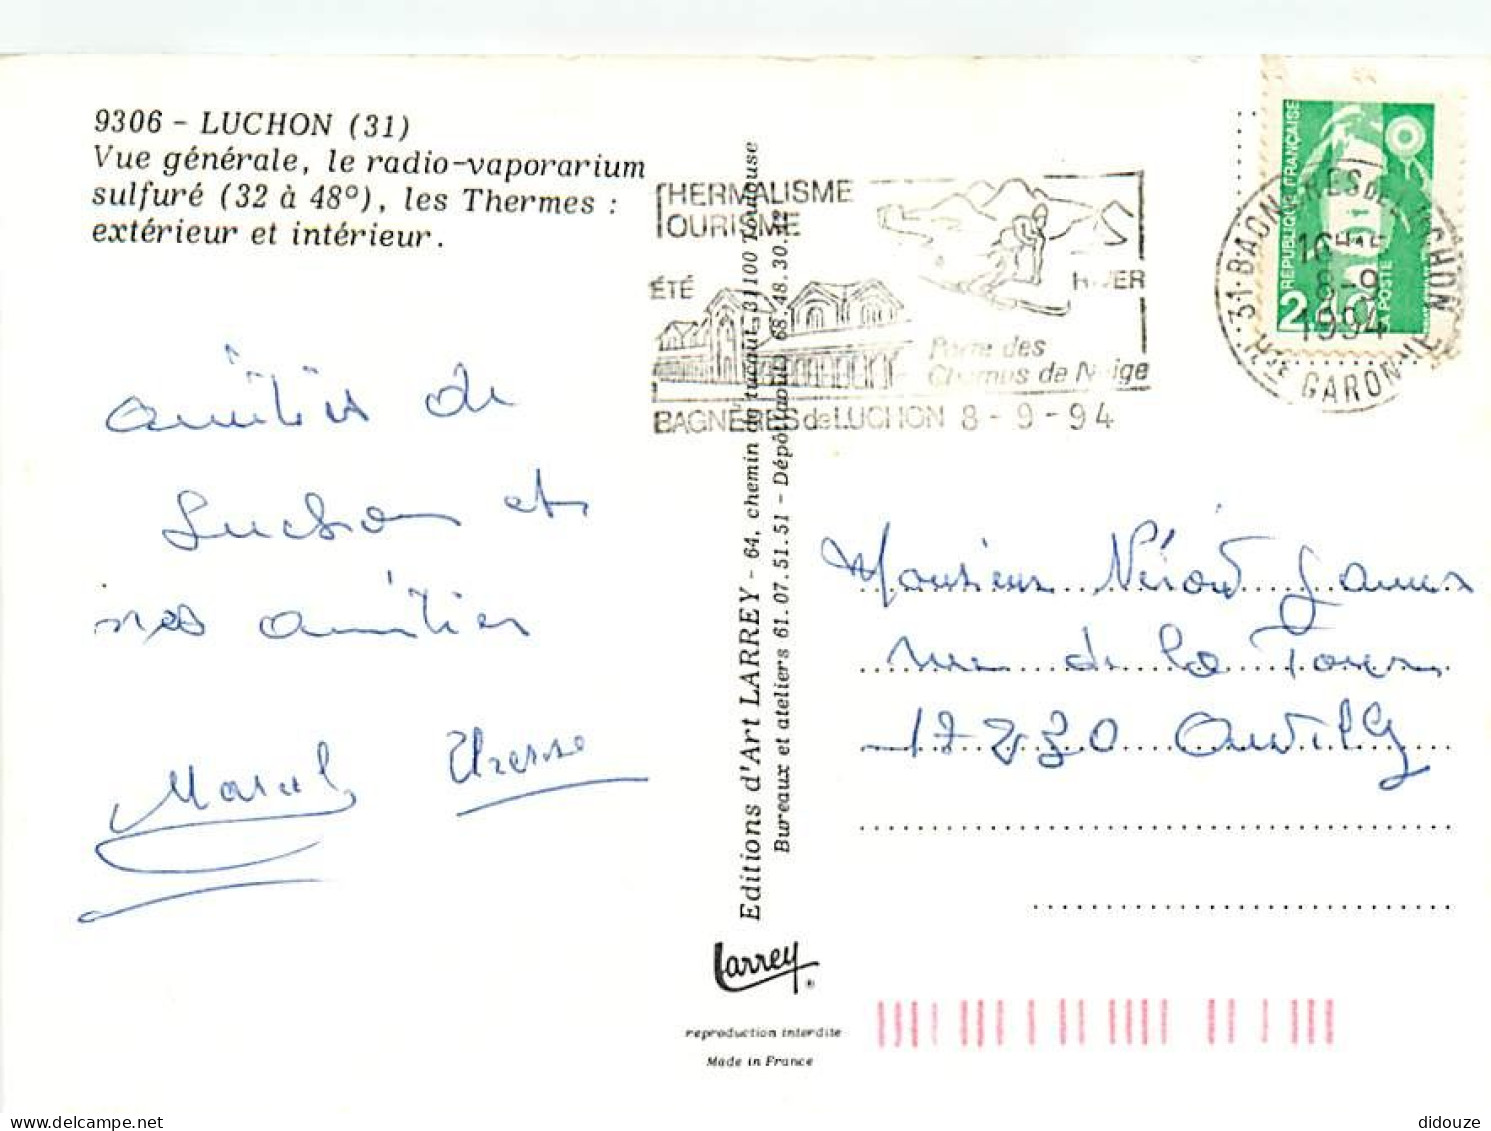 9306 - LUCHON (31)
Vue générale, le radio-vaporarium
sulfuré (32 à 48°), les Thermes :
extérieur et intérieur.
THERMALISME
TOURISME
ÉTÉ
HIVER
Porte des
Champs de Neige
BAGNÈRES de LUCHON 8 - 9 - 94
RÉPUBLIQUE FRANÇAISE
LA POSTE
31 BAGNERES DE LUCHON
16H15
8-9
1994
Hte GARONNE
amitiés de
Luchon et
nos amitiés
Marcel Therese
Editions d'Art LARREY - 64, chemin du tucaut, 31100 Toulouse
Bureaux et ateliers 61.07.51.51 - Dépôt 68.48.30.
Monsieur
rue de la Tour
17230 Andilly
Larrey
reproduction interdite
Made in France
delcampe.net
didouze